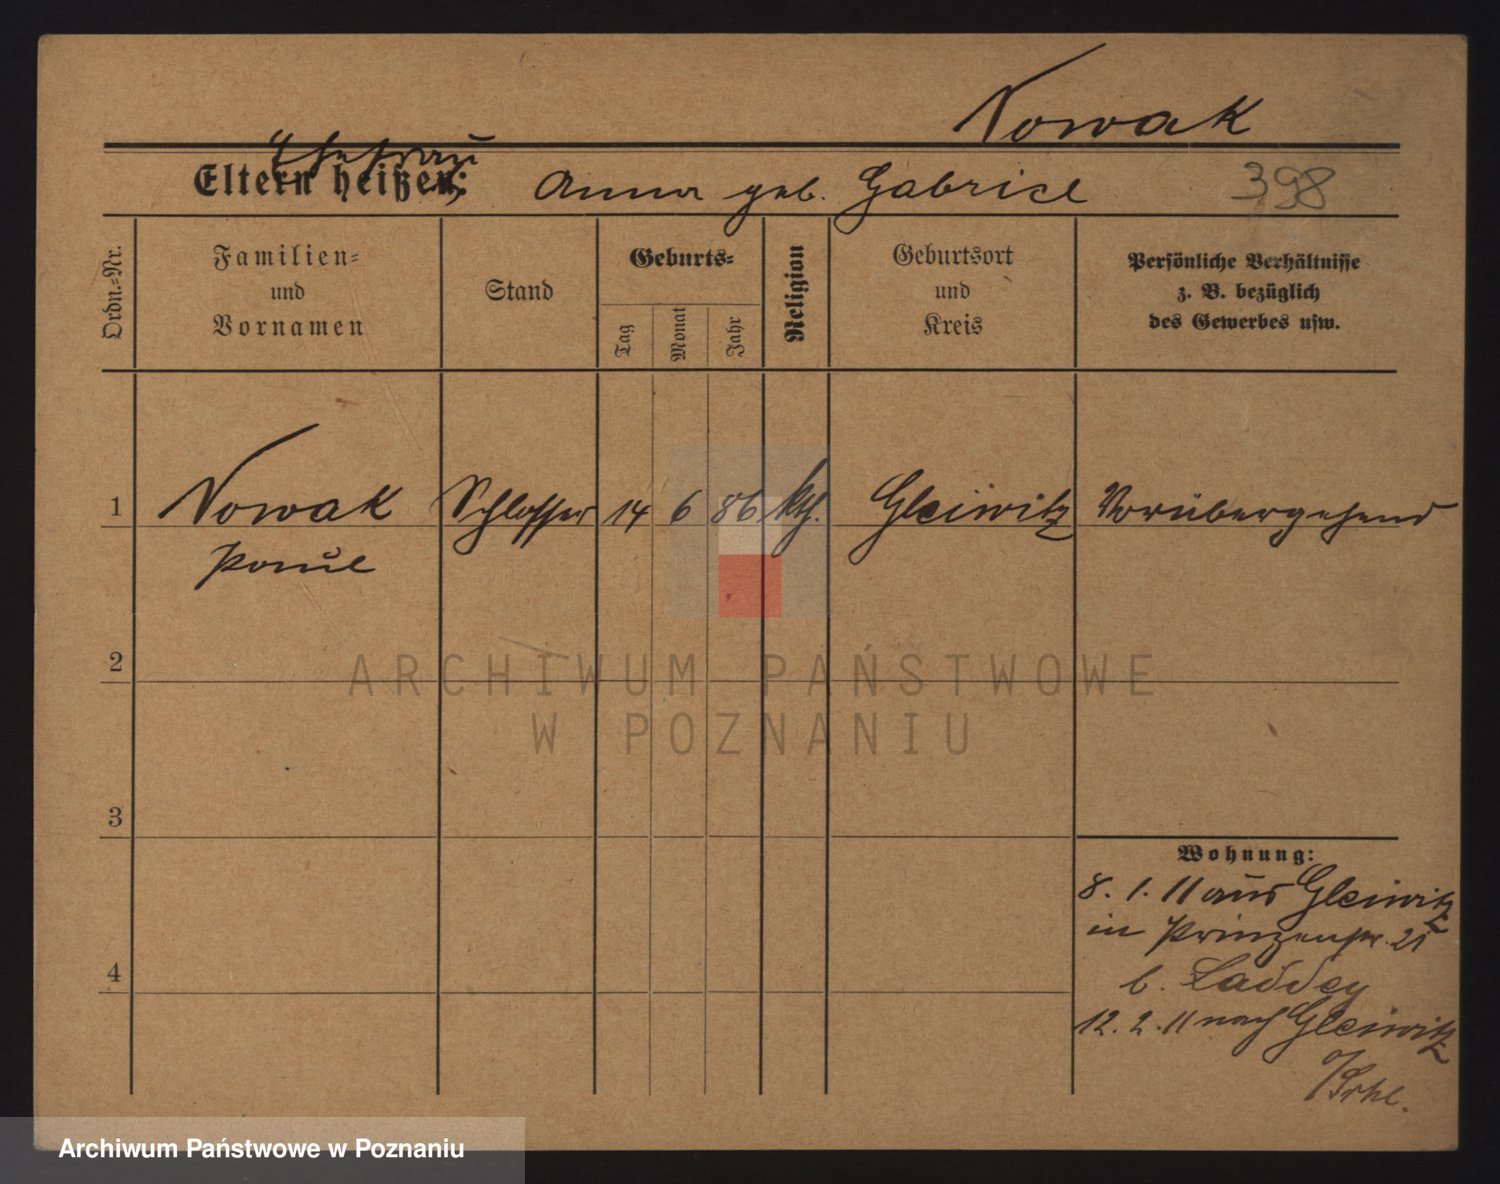 Nowak
Ehefrau
Eltern heißen: Anna geb. Gabriel 398
Ordn.-Nr.
Familien-
und
Vornamen
Stand
Geburts-
Tag
Monat
Jahr
Religion
Geburtsort
und
Kreis
Persönliche Verhältnisse
z. B. bezüglich
des Gewerbes usw.
1 Nowak Schlosser 14 6 86 kth. Gleiwitz Vorübergehend
Paul
2
ARCHIWUM PAŃSTWOWE
W POZNANIU
3
Wohnung:
8. 1. 11 aus Gleiwitz
in Prinzenstr. 21
4
b. Laddey
12. 2. 11 nach Gleiwitz
Archiwum Państwowe w Poznaniu